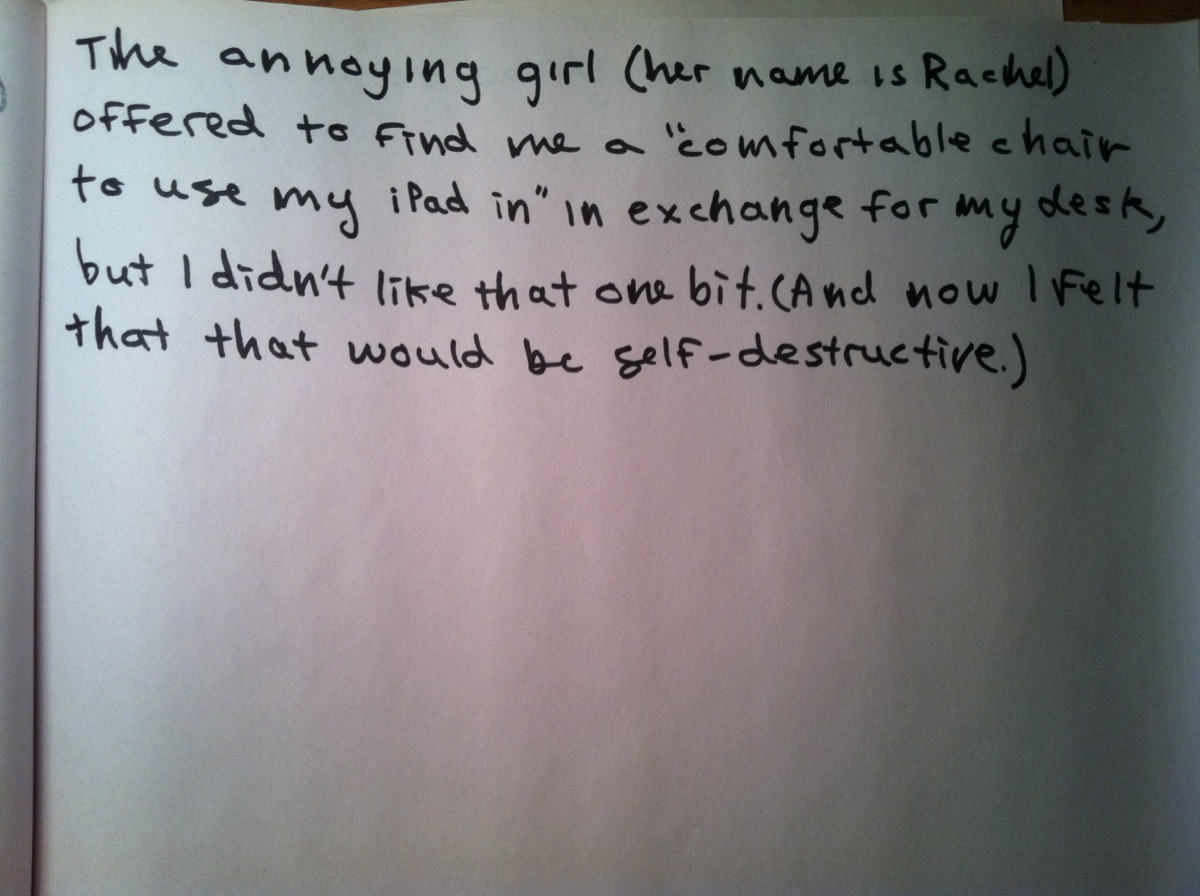 The annoying girl (her name is Rachel)
offered to find me a "comfortable chair
to use my iPad in" in exchange for my desk,
but I didn't like that one bit. (And now I felt
that that would be self-destructive.)